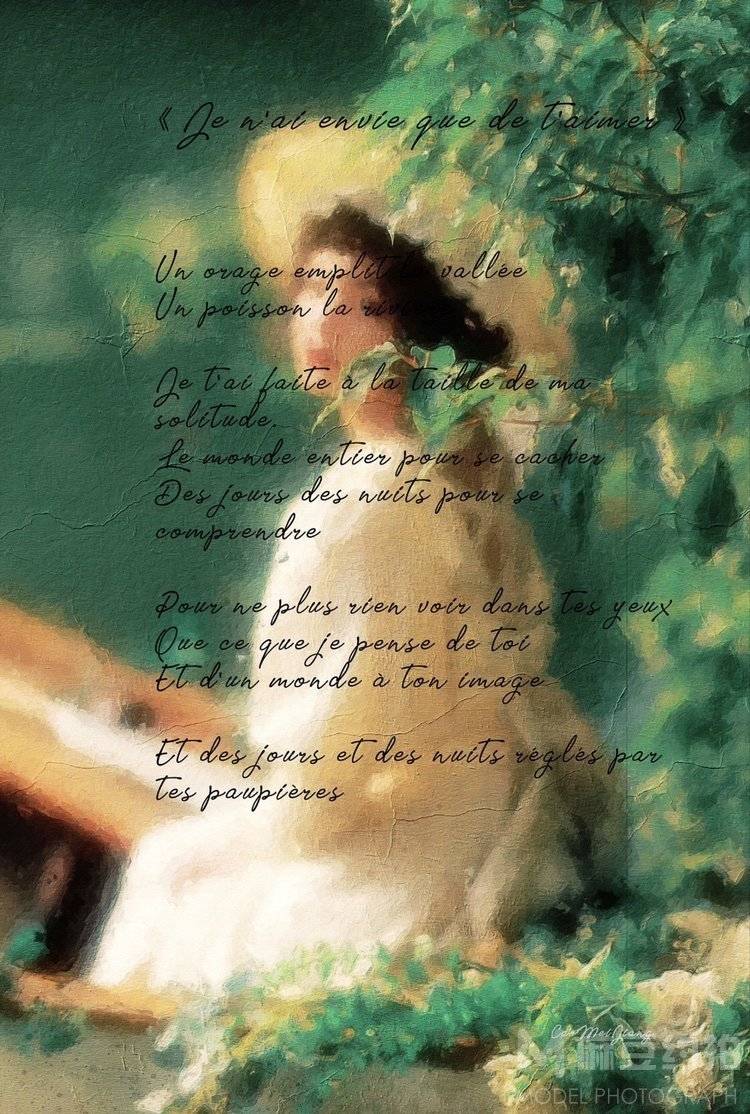 《 Je n'ai envie que de t'aimer 》
Un orage emplit la vallée
Un poisson la rivière
Je t'ai faite à la taille de ma
solitude.
Le monde entier pour se cacher
Des jours des nuits pour se
comprendre
Pour ne plus rien voir dans tes yeux
Que ce que je pense de toi
Et d'un monde à ton image
Et des jours et des nuits réglés par
tes paupières
MODEL PHOTOGRAPH